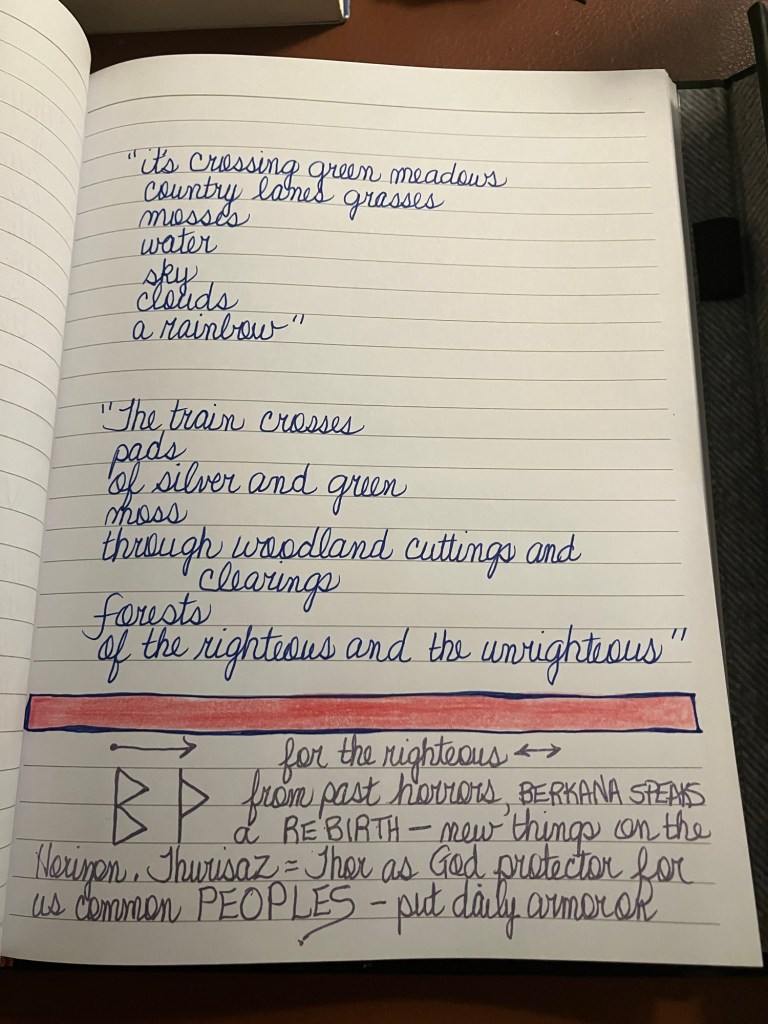 "it's crossing green meadows
country lanes grasses
mosses
water
sky
clouds
a rainbow"
"The train crosses
pads
of silver and green
moss
through woodland cuttings and
clearings
forests
of the righteous and the unrighteous"
for the righteous ↔
ᛒ ᚦ from past horrors, BERKANA SPEAKS
a REBIRTH – new things on the
Horizon. Thurisaz = Thor as God protector for
us common PEOPLES – put daily armor ok